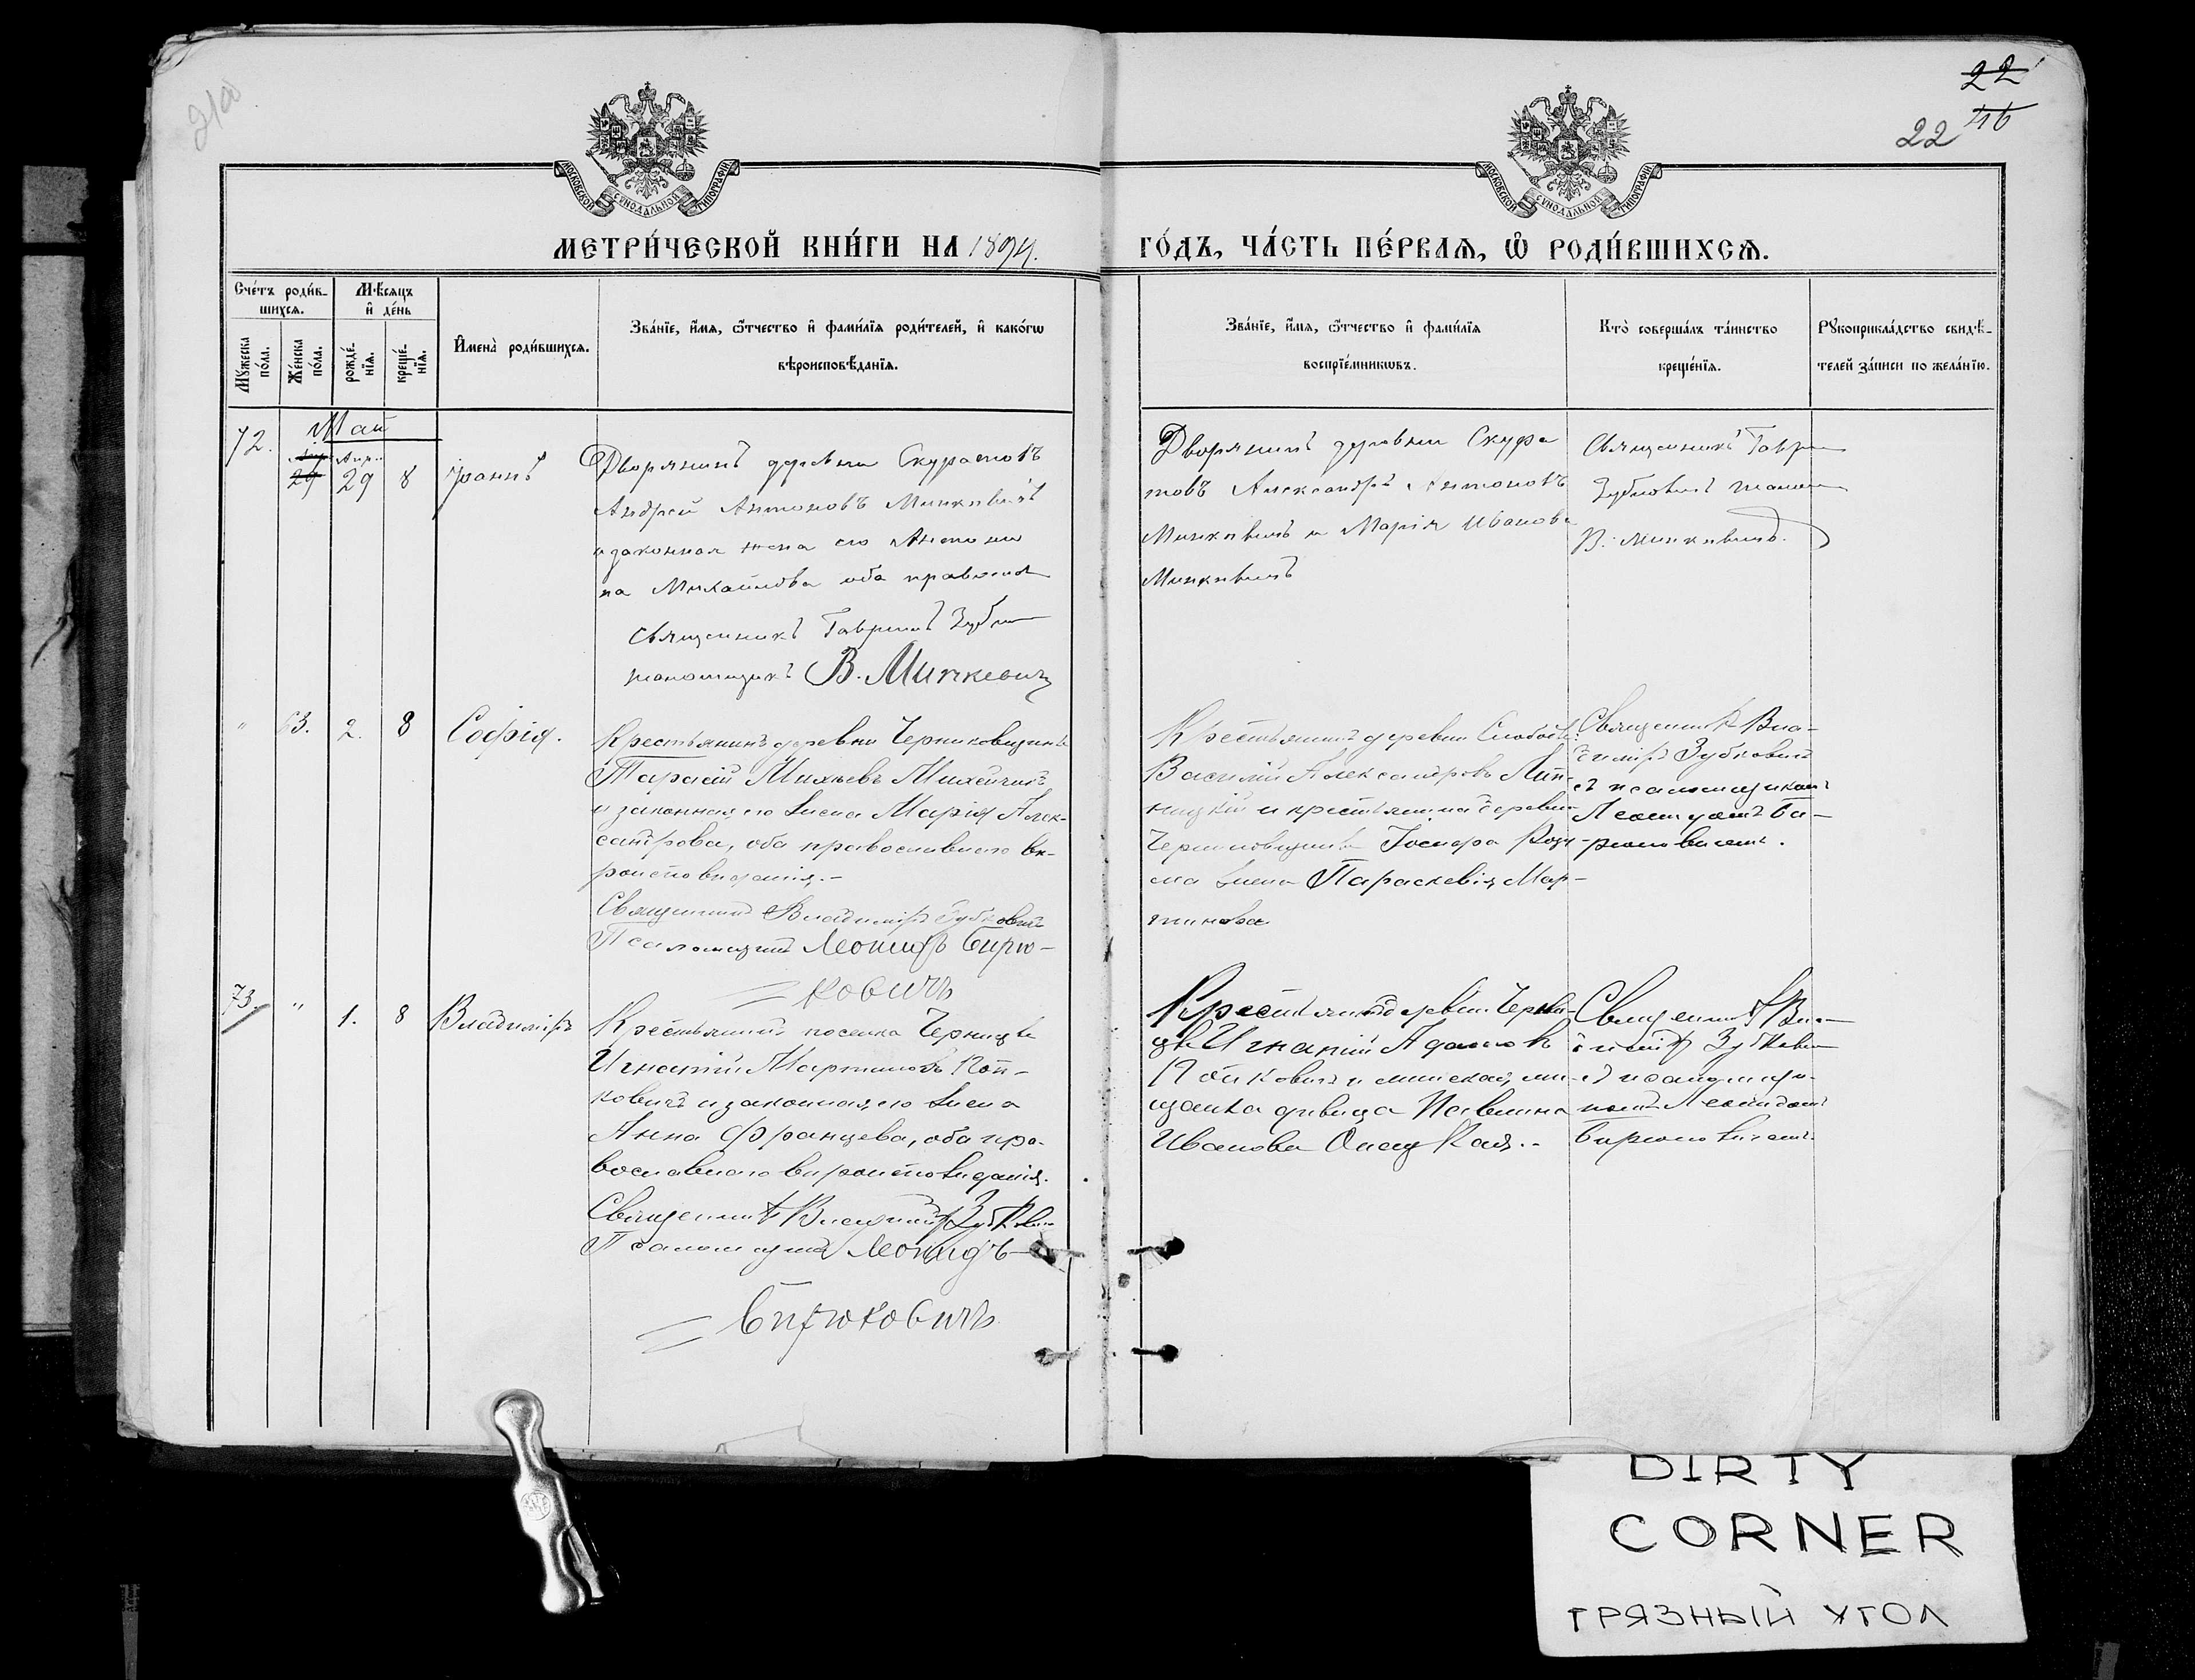 22
22
МОСКОВСКОЙ СѴНОДАЛЬНОЙ ТИПОГРАФІИ
МОСКОВСКОЙ СѴНОДАЛЬНОЙ ТИПОГРАФІИ
МЕТРИ́ЧЕСКОЙ КНИ́ГИ НА 1894. ГО́ДЪ, ЧА́СТЬ ПЕ́РВАѦ, Ѡ҆ РОДИ́ВШИХСѦ.
Сче́тъ роди́в-
шихсѧ.
Мꙋ́жеска по́ла.
Же́нска по́ла.
Мѣ́сѧцъ
и҆ де́нь
рожде́-
нїѧ.
креще́-
нїѧ.
И҆мена̀ роди́вшихсѧ.
Зва́нїе, и҆́мѧ, ѻ҆́тчество и҆ фами́лїѧ роди́телей, и҆ како́гѡ
вѣроисповѣ́данїѧ.
Зва́нїе, и҆́мѧ, ѻ҆́тчество и҆ фами́лїѧ
воспрїе́мникѡвъ.
Кто̀ соверша́лъ та́инство
креще́нїѧ.
Рꙋкоприкла́дство свидѣ́-
телей за́писи по жела́нїю.
Май
72.
29
29
8
Іоаннъ
Дворянинъ деревни Скуратовъ
Андрей Антоновъ Минкевичъ
и законная жена его Антони
на Михайлова оба православ
Священникъ Гавриилъ Зубко
псаломщикъ В. Минкевичъ
Дворянинъ деревни Скура
товъ Александръ Антоновъ
Минкевичъ и Марія Иванова
Минкевичъ
Священникъ Гаври
Зубковичъ
В. Минкевичъ.
"
63.
2.
8
Софія.
Крестьянинъ деревни Черниковщины
Тарасій Михеевъ Михейчикъ
и законная его жена Марія Алек-
сандрова, оба православнаго вѣ-
роисповѣданія.-
Священникъ Владиміръ Зубковичъ
Псаломщикъ Леонидъ Бирю-
ковичъ
Крестьянинъ деревни
Василій Александровъ Лип-
ницкій и крестьянина деревни
Черниковщины
жена Параскевія Мар-
тинова
Священникъ Вла-
диміръ Зубковичъ
съ псаломщикомъ
Леонидомъ Би-
рюковичемъ.
73.
"
1.
8
Владиміръ
Крестьянинъ поселка Черницы
Игнатій Мартиновъ Поп-
ковичъ и законная его жена
Анна Францева, оба пра-
вославнаго вѣроисповѣданія.
Священникъ Владиміръ Зубкович
Псаломщикъ Леонидъ
Бирюковичъ
Крестьянинъ деревни Черни-
цы Игнатій Адамовъ
Попковичъ и минская мѣ-
щанка дѣвица Павлина
Иванова
Священникъ Вла-
диміръ Зубкович
съ псаломщи-
комъ Леонидомъ
Бирюковичемъ.
DIRTY
CORNER
ГРЯЗНЫЙ УГОЛ